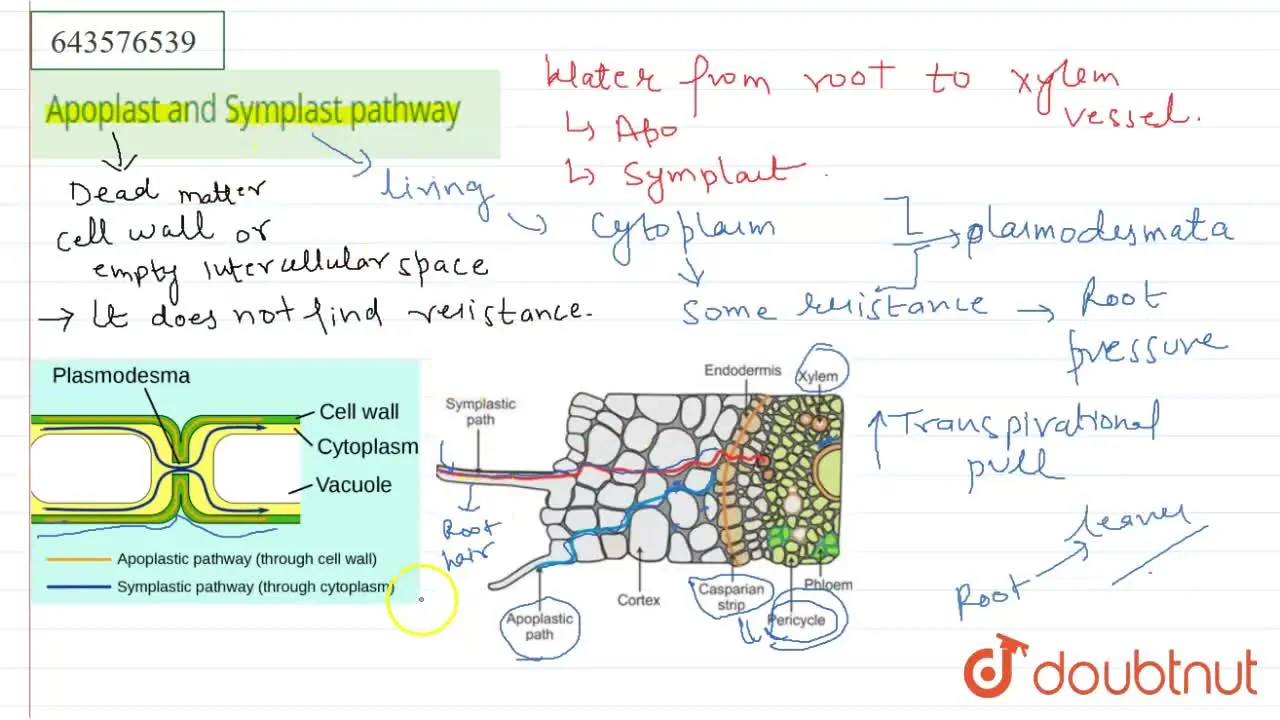 643576539
Apoplast and Symplast pathway
Water from root to xylem
vessel.
↳ Apo
↳ Symplast.
Dead matter
cell wall or
empty intercellular space
→ It does not find resistance.
living
Cytoplasm
plasmodesmata
Some resistance → Root
pressure
Transpirational
pull
leaves
Root
Plasmodesma
Cell wall
Cytoplasm
Vacuole
Apoplastic pathway (through cell wall)
Symplastic pathway (through cytoplasm)
Symplastic
path
Endodermis
Xylem
Root
hair
Apoplastic
path
Cortex
Casparian
strip
Pericycle
Phloem
doubtnut